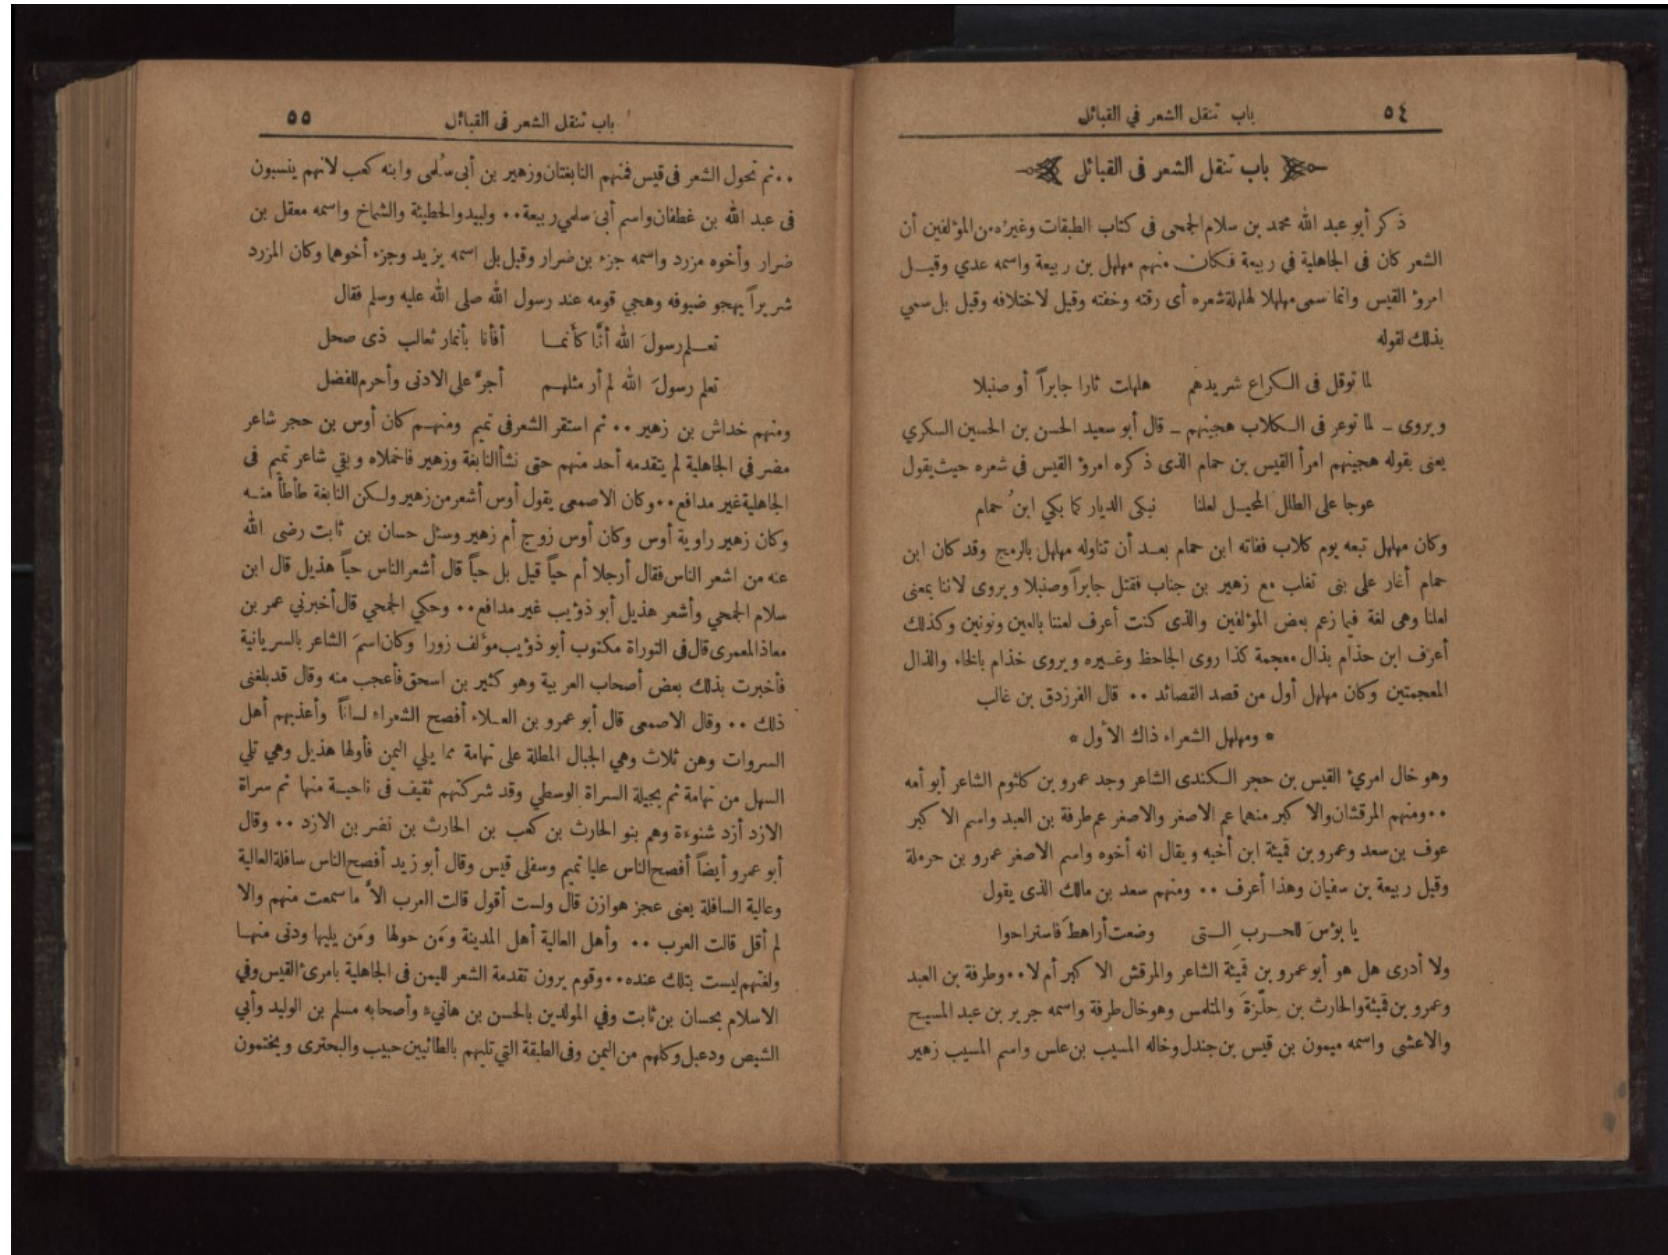 ٥٤ باب تنقل الشعر في القبائل
باب تنقل الشعر فى القبائل
ذكر أبو عبد الله محمد بن سلام الجمحى فى كتاب الطبقات وغيره من المؤلفين أن
الشعر كان فى الجاهلية في ربيعة فكان منهم مهلهل بن ربيعة واسمه عدي وقيل
امرؤ القيس وانما سمى مهلهلا لهلهلة شعره أى رقته وخفته وقيل لاختلافه وقيل بل سمي
بذلك لقوله
لما توقل فى الكراع شريدهم هلهلت ثارا جابراً أو صنبلا
ويروى ـ لما توعر فى الكلاب هجينهم ـ قال أبو سعيد الحسن بن الحسين السكري
يعنى بقوله هجينهم امرأ القيس بن حمام الذى ذكره امرؤ القيس فى شعره حيث يقول
عوجا على الطلل المحيل لعلنا نبكى الديار كما بكي ابنُ حمام
وكان مهلهل تبعه يوم كلاب ففاته ابن حمام بعد أن تناوله مهلهل بالرمح وقد كان ابن
حمام أغار على بنى تغلب مع زهير بن جناب فقتل جابراً وصنبلا ويروى لاننا بمعنى
لعلنا وهى لغة فيما زعم بعض المؤلفين والذى كنت أعرف لعننا بالعين ونونين وكذلك
أعرف ابن حذام بذال معجمة كذا روى الجاحظ وغيره ويروى خذام بالخاء والذال
المعجمتين وكان مهلهل أول من قصد القصائد ٠٠ قال الفرزدق بن غالب
* ومهلهل الشعراء ذاك الأول *
وهو خال امرئ القيس بن حجر الكندى الشاعر وجد عمرو بن كلثوم الشاعر أبو أمه
٠٠ومنهم المرقشان والاكبر منهما عم الاصغر والاصغر عم طرفة بن العبد واسم الاكبر
عوف بن سعد وعمرو بن قميئة ابن أخيه ويقال انه أخوه واسم الاصغر عمرو بن حرملة
وقيل ربيعة بن سفيان وهذا أعرف ٠٠ ومنهم سعد بن مالك الذى يقول
يا بؤسَ للحربِ التى وضعت أراهطَ فاستراحوا
ولا أدرى هل هو أبو عمرو بن قميئة الشاعر والمرقش الاكبر أم لا٠٠وطرفة بن العبد
وعمرو بن قميئة والحارث بن حِلّزةَ والمتلمس وهو خال طرفة واسمه جرير بن عبد المسيح
والاعشى واسمه ميمون بن قيس بن جندل وخاله المسيب بن علس واسم المسيب زهير
باب تنقل الشعر فى القبائل ٥٥
٠٠ثم تحول الشعر فى قيس فمنهم النابغتان وزهير بن أبى سُلمى وابنه كعب لانهم ينسبون
فى عبد الله بن غطفان واسم أبى سلمي ربيعة٠٠ ولبيد والحطيئة والشماخ واسمه معقل بن
ضرار وأخوه مزرد واسمه جزء بن ضرار وقيل بل اسمه يزيد وجزء أخوهما وكان المزرد
شريراً يهجو ضيوفه وهجي قومه عند رسول الله صلى الله عليه وسلم فقال
تعلم رسولَ الله أنَّا كأنما أفأنا بأنمار ثعالب ذى صحل
تعلم رسولَ الله لم أر مثلهم أجرَّ على الادنى وأحرم للفضل
ومنهم خداش بن زهير ٠٠ ثم استقر الشعر فى تميم ومنهم كان أوس بن حجر شاعر
مضر في الجاهلية لم يتقدمه أحد منهم حتى نشأ النابغة وزهير فاخملاه وبقي شاعر تميم فى
الجاهلية غير مدافع٠٠وكان الاصمعى يقول أوس أشعر من زهير ولكن النابغة طأطأ منه
وكان زهير راوية أوس وكان أوس زوج أم زهير وسئل حسان بن ثابت رضى الله
عنه من اشعر الناس فقال أرجلا أم حياً قيل بل حياً قال أشعر الناس حياً هذيل قال ابن
سلام الجمحي وأشعر هذيل أبو ذؤيب غير مدافع٠٠ وحكي الجمحي قال أخبرني عمر بن
معاذ المعمرى قال فى التوراة مكتوب أبو ذؤيب مؤلف زورا وكان اسمَ الشاعر بالسريانية
فأخبرت بذلك بعض أصحاب العربية وهو كثير بن اسحق فأعجب منه وقال قد بلغنى
ذلك ٠٠ وقال الاصمعى قال أبو عمرو بن العلاء أفصح الشعراء لساناً وأعذبهم أهل
السروات وهن ثلاث وهي الجبال المطلة على تهامة مما يلي اليمن فأولها هذيل وهي تلي
السهل من تهامة ثم بجيلة السراة الوسطي وقد شركتهم ثقيف فى ناحية منها ثم سراة
الازد أزد شنوءة وهم بنو الحارث بن كعب بن الحارث بن نضر بن الازد ٠٠ وقال
أبو عمرو أيضاً أفصح الناس عليا تميم وسفلى قيس وقال أبو زيد أفصح الناس سافلة العالية
وعالية السافلة يعنى عجز هوازن قال ولست أقول قالت العرب الاَّ ما سمعت منهم والا
لم أقل قالت العرب ٠٠ وأهل العالية أهل المدينة ومَن حولها ومَن يليها ودنى منها
ولغتهم ليست بتلك عنده٠٠وقوم يرون تقدمة الشعر لليمن فى الجاهلية بامرئ القيس وفي
الاسلام بحسان بن ثابت وفي المولدين بالحسن بن هانيء وأصحابه مسلم بن الوليد وأبي
الشيص ودعبل وكلهم من اليمن وفى الطبقة التي تليهم بالطائيين حبيب والبحترى ويختمون